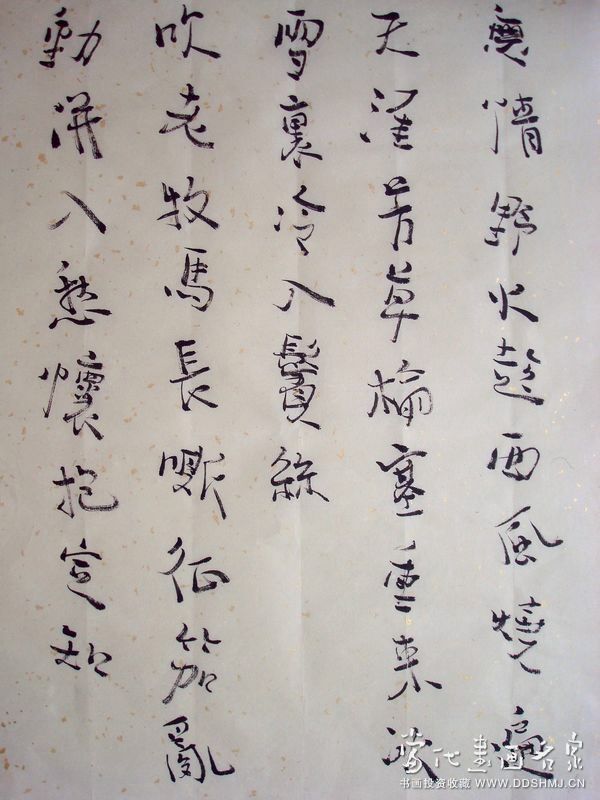 無情野火趁西風燒遍
天涯芳草榆塞重來冰
雪裏冷入鬢絲
吹老牧馬長嘶征笳亂
動併入愁懷抱定知
當代書畫名家
书画投资收藏 WWW.DDSHMJ.CN